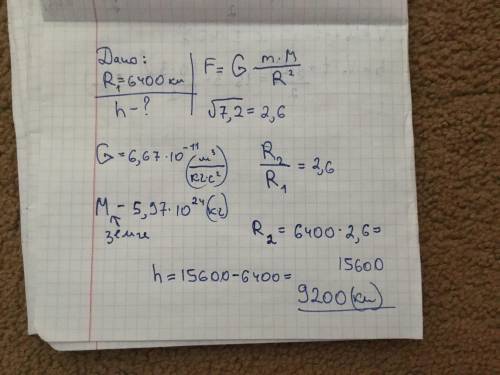 Дано:
R₁=6400 км
h - ?
F = G m·M / R²
√7,2 = 2,6
G = 6,67·10⁻¹¹ (м³ / кг·с²)
R₂ / R₁ = 2,6
M - 5,97·10²⁴ (кг)
↑
земле
R₂ = 6400·2,6=
15600
h = 15600-6400=
9200 (км)